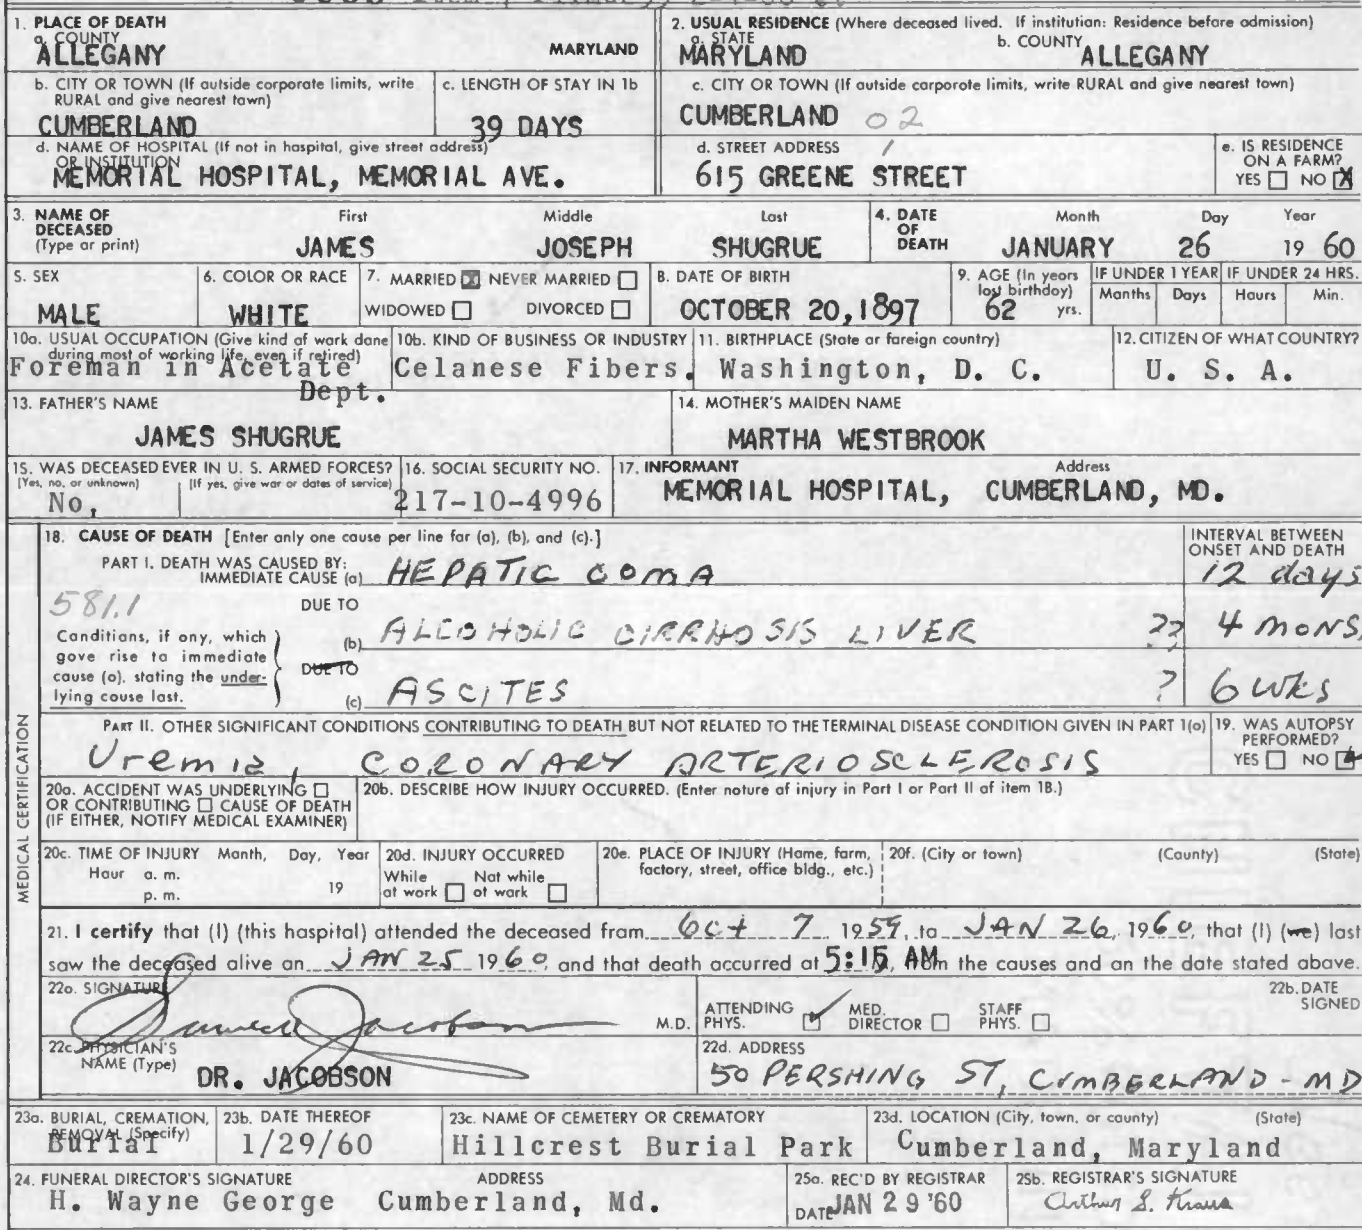 1. PLACE OF DEATH
a. COUNTY
ALLEGANY MARYLAND
2. USUAL RESIDENCE (Where deceased lived. If institution: Residence before admission)
a. STATE b. COUNTY
MARYLAND ALLEGANY
b. CITY OR TOWN (If outside corporate limits, write RURAL and give nearest town)
CUMBERLAND
c. LENGTH OF STAY IN 1b
39 DAYS
c. CITY OR TOWN (If outside corporate limits, write RURAL and give nearest town)
CUMBERLAND 02
d. NAME OF HOSPITAL (If not in hospital, give street address)
OR INSTITUTION
MEMORIAL HOSPITAL, MEMORIAL AVE.
d. STREET ADDRESS
615 GREENE STREET
e. IS RESIDENCE
ON A FARM?
YES NO X
3. NAME OF
DECEASED
(Type or print)
First Middle Last
JAMES JOSEPH SHUGRUE
4. DATE
OF
DEATH
Month Day Year
JANUARY 26 19 60
5. SEX
MALE
6. COLOR OR RACE
WHITE
7. MARRIED X NEVER MARRIED
WIDOWED DIVORCED
8. DATE OF BIRTH
OCTOBER 20, 1897
9. AGE (In years
last birthday)
62 yrs.
IF UNDER 1 YEAR
Months Days
IF UNDER 24 HRS.
Hours Min.
10a. USUAL OCCUPATION (Give kind of work done
during most of working life, even if retired)
Foreman in Acetate
Dept.
10b. KIND OF BUSINESS OR INDUSTRY
Celanese Fibers.
11. BIRTHPLACE (State or foreign country)
Washington, D. C.
12. CITIZEN OF WHAT COUNTRY?
U. S. A.
13. FATHER'S NAME
JAMES SHUGRUE
14. MOTHER'S MAIDEN NAME
MARTHA WESTBROOK
15. WAS DECEASED EVER IN U. S. ARMED FORCES?
(Yes, no, or unknown) (If yes, give war or dates of service)
No,
16. SOCIAL SECURITY NO.
217-10-4996
17. INFORMANT Address
MEMORIAL HOSPITAL, CUMBERLAND, MD.
MEDICAL CERTIFICATION
18. CAUSE OF DEATH [Enter only one cause per line for (a), (b), and (c).]
INTERVAL BETWEEN
ONSET AND DEATH
PART I. DEATH WAS CAUSED BY:
IMMEDIATE CAUSE (a) HEPATIC COMA 12 days
581.1
DUE TO
Conditions, if any, which
gave rise to immediate
cause (a), stating the under-
lying cause last.
(b) ALCOHOLIC CIRRHOSIS LIVER ?? 4 MONS
DUE TO
(c) ASCITES ? 6 WKS
PART II. OTHER SIGNIFICANT CONDITIONS CONTRIBUTING TO DEATH BUT NOT RELATED TO THE TERMINAL DISEASE CONDITION GIVEN IN PART 1(a)
Uremia, CORONARY ARTERIOSCLEROSIS
19. WAS AUTOPSY
PERFORMED?
YES NO
20a. ACCIDENT WAS UNDERLYING
OR CONTRIBUTING CAUSE OF DEATH
(IF EITHER, NOTIFY MEDICAL EXAMINER)
20b. DESCRIBE HOW INJURY OCCURRED. (Enter nature of injury in Part I or Part II of item 18.)
20c. TIME OF INJURY Month, Day, Year
Hour a. m.
p. m. 19
20d. INJURY OCCURRED
While at work Not while at work
20e. PLACE OF INJURY (Home, farm,
factory, street, office bldg., etc.)
20f. (City or town) (County) (State)
21. I certify that (I) (this hospital) attended the deceased from Oct 7 1959, to JAN 26, 1960, that (I) (we) last
saw the deceased alive on JAN 25 1960, and that death occurred at 5:15 AM, from the causes and on the date stated above.
22a. SIGNATURE
Samuel Jacobson M.D.
ATTENDING
PHYS.
MED.
DIRECTOR
STAFF
PHYS.
22b. DATE
SIGNED
22c. PHYSICIAN'S
NAME (Type)
DR. JACOBSON
22d. ADDRESS
50 PERSHING ST, CUMBERLAND - MD
23a. BURIAL, CREMATION,
REMOVAL (Specify)
Burial
23b. DATE THEREOF
1/29/60
23c. NAME OF CEMETERY OR CREMATORY
Hillcrest Burial Park
23d. LOCATION (City, town, or county) (State)
Cumberland, Maryland
24. FUNERAL DIRECTOR'S SIGNATURE ADDRESS
H. Wayne George Cumberland, Md.
25a. REC'D BY REGISTRAR
DATE JAN 29 '60
25b. REGISTRAR'S SIGNATURE
Arthur S. Kraus